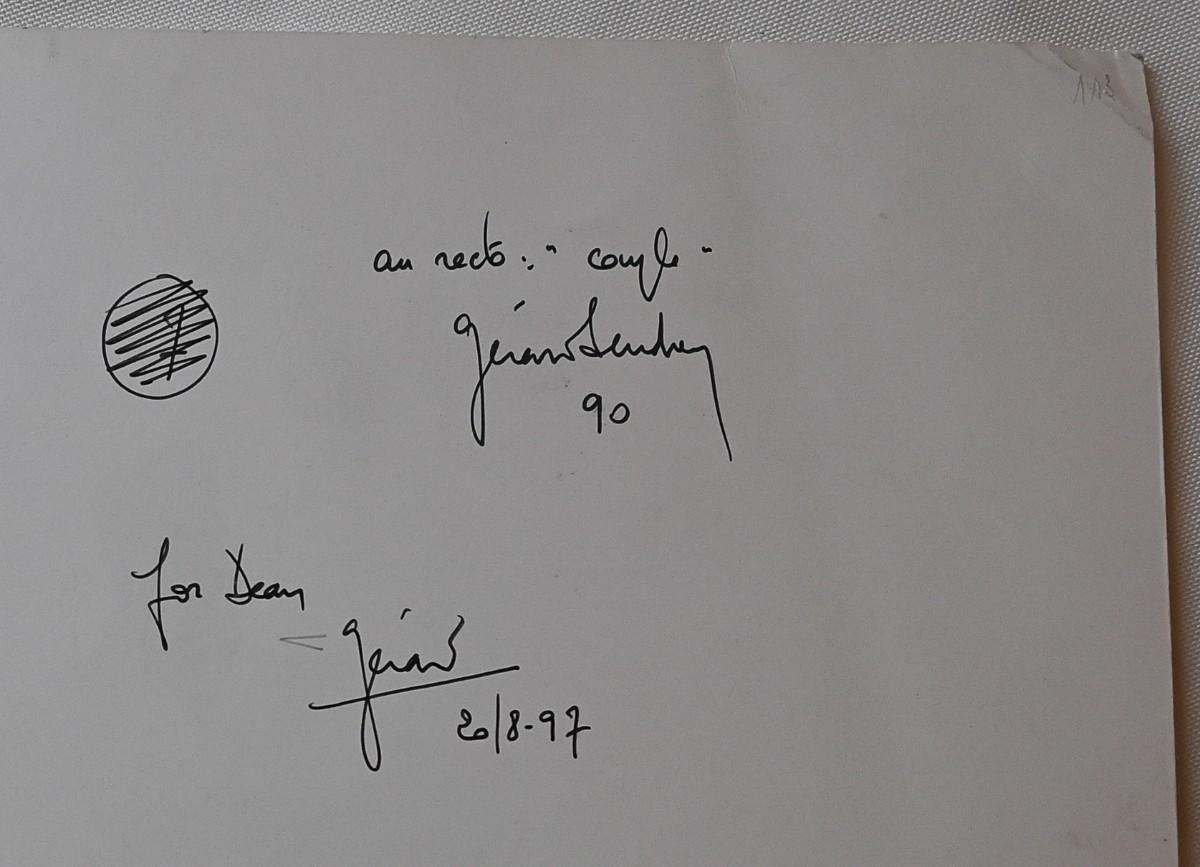 au recto : " couple "
Gérard Sendrey
90
1
for Dean
Gérard
20/8-97